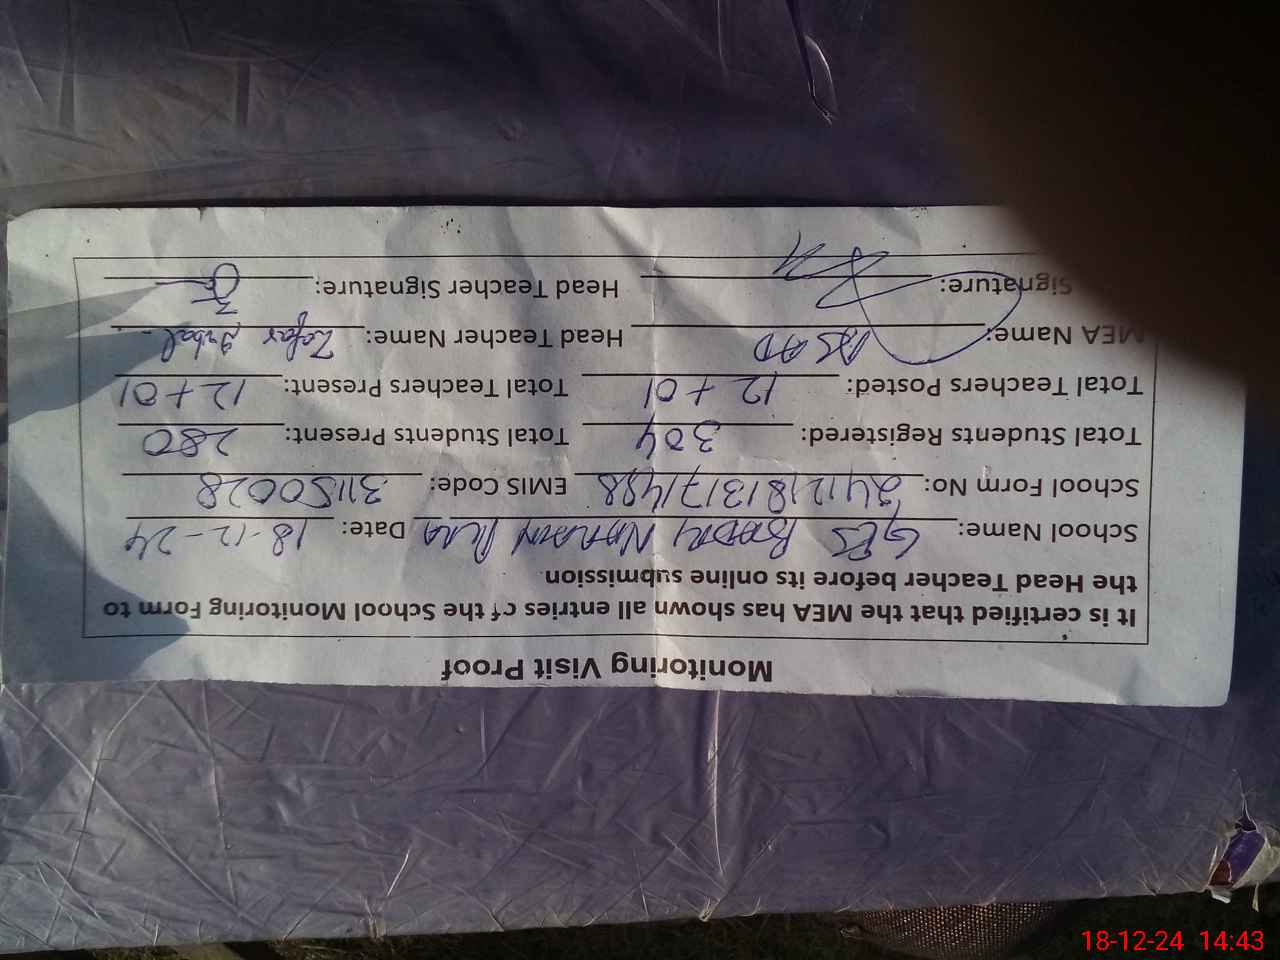 Monitoring Visit Proof
It is certified that the MEA has shown all entries of the School Monitoring Form to
the Head Teacher before its online submission
School Name: GES Date: 18-12-24
School Form No: EMIS Code: 31150028
Total Students Registered: 304 Total Students Present: 280
Total Teachers Posted: 12+01 Total Teachers Present: 12+01
MEA Name: ASAD Head Teacher Name: Zafar Iqbal
Signature: Head Teacher Signature:
18-12-24 14:43